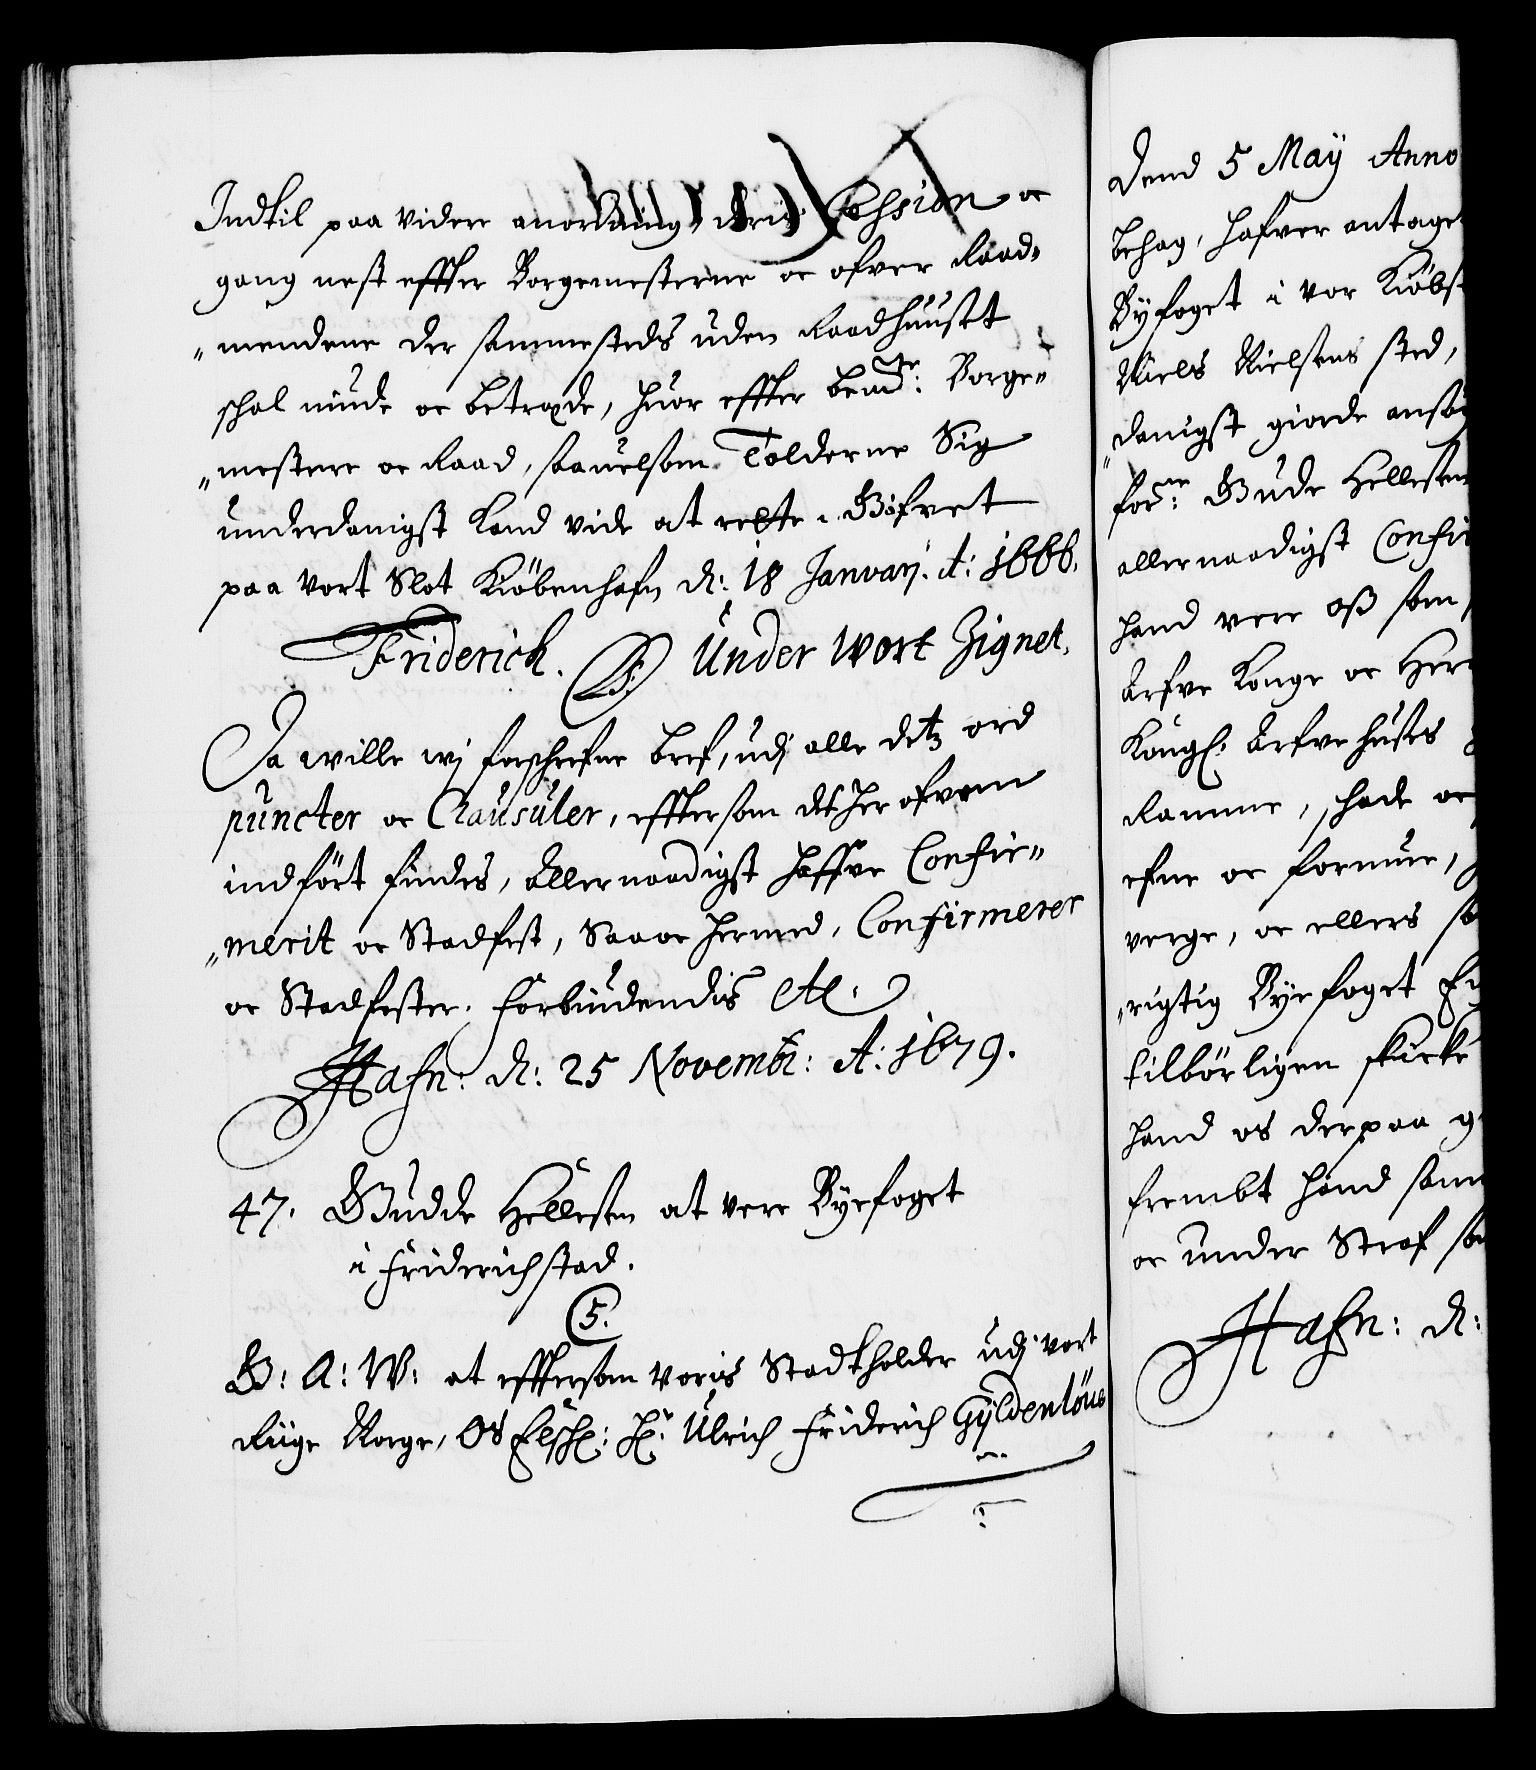 Indtil paa videre anordning deris Session oc
gang nest effter Borgemesterne oc ofver Raad-
„mendene der sammesteds uden Raadhuuset
schal niude oc betræde, huor effter bemte: Borge-
„mestere oc Raad, saauelsom Tolderne Sig
underdanigst kand vide at rette. Gifvet
paa vort Slot Kiöbenhafn d: 18 Januarj. A: 1666.
Friderich. (LS.) Under Wort Zignet.
Da wille wj forschrefne bref, udj alle detz ord
puncter oc Clausuler, efftersom det her ofven
indfört findes, allernaadigst haffve Confir-
„merit oc Stadfest, Saa oc hermed, Confirmerer
oc Stadfester. Forbiudendis etc.
Hafn: d: 25 Novembr: A: 1679.
47. Gudde Hellesen at vere Byefoget
i Friderichstad.
C5.
G: A: W: at efftersom voris Stadtholder udj vort
Riige Norge, Os Elschel: Hr. Ulrich Friderich Gyldenlöue
Dend 5 Maÿ Anno
behag, hafver antage
Byfoget i vor Kiöbs
Niels Nielsens sted,
„danigst giorde ansög
forne: Gude Hellesen
allernaadigst Confir
hand vere oß som
Arfve Konge oc Her
Kongl: Arfve Huses
Ramme, skade oc
efne oc formue,
verge, oc ellers so
„rigtig Byefoget Ey
tilbörligen skicke
hand os derpaa g
frembt hand sam
oc under Straf so
Hafn: d: